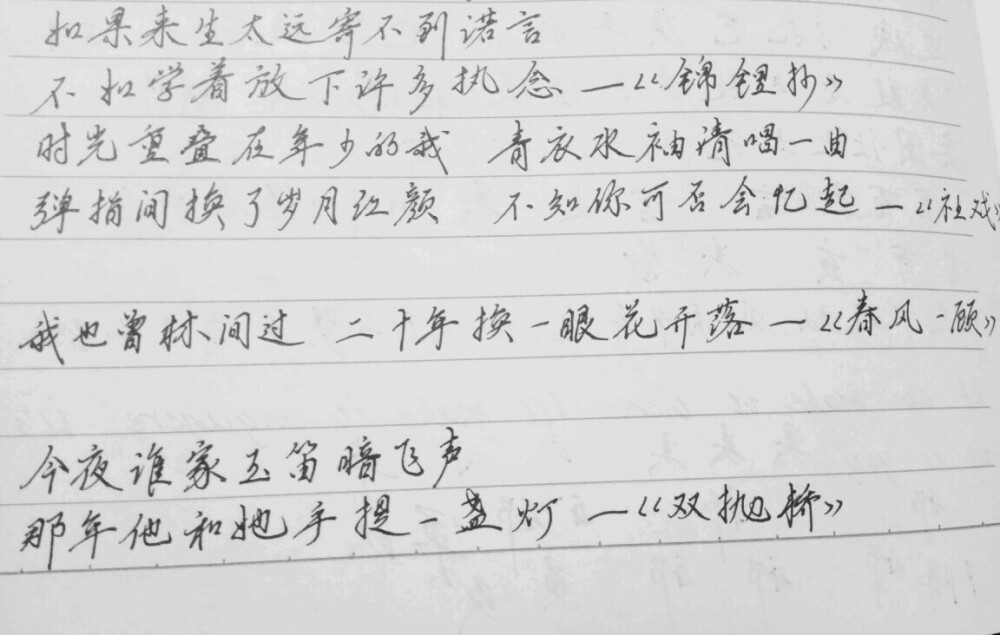 如果来生太远寄不到诺言
不如学着放下许多执念 —《锦鲤抄》
时光重叠在年少的我 青衣水袖清唱一曲
弹指间换了岁月红颜 不知你可否会忆起 —《社戏》
我也曾林间过 二十年换一眼花开落 —《春风一顾》
今夜谁家玉笛暗飞声
那年他和她手提一盏灯 —《双抛桥》